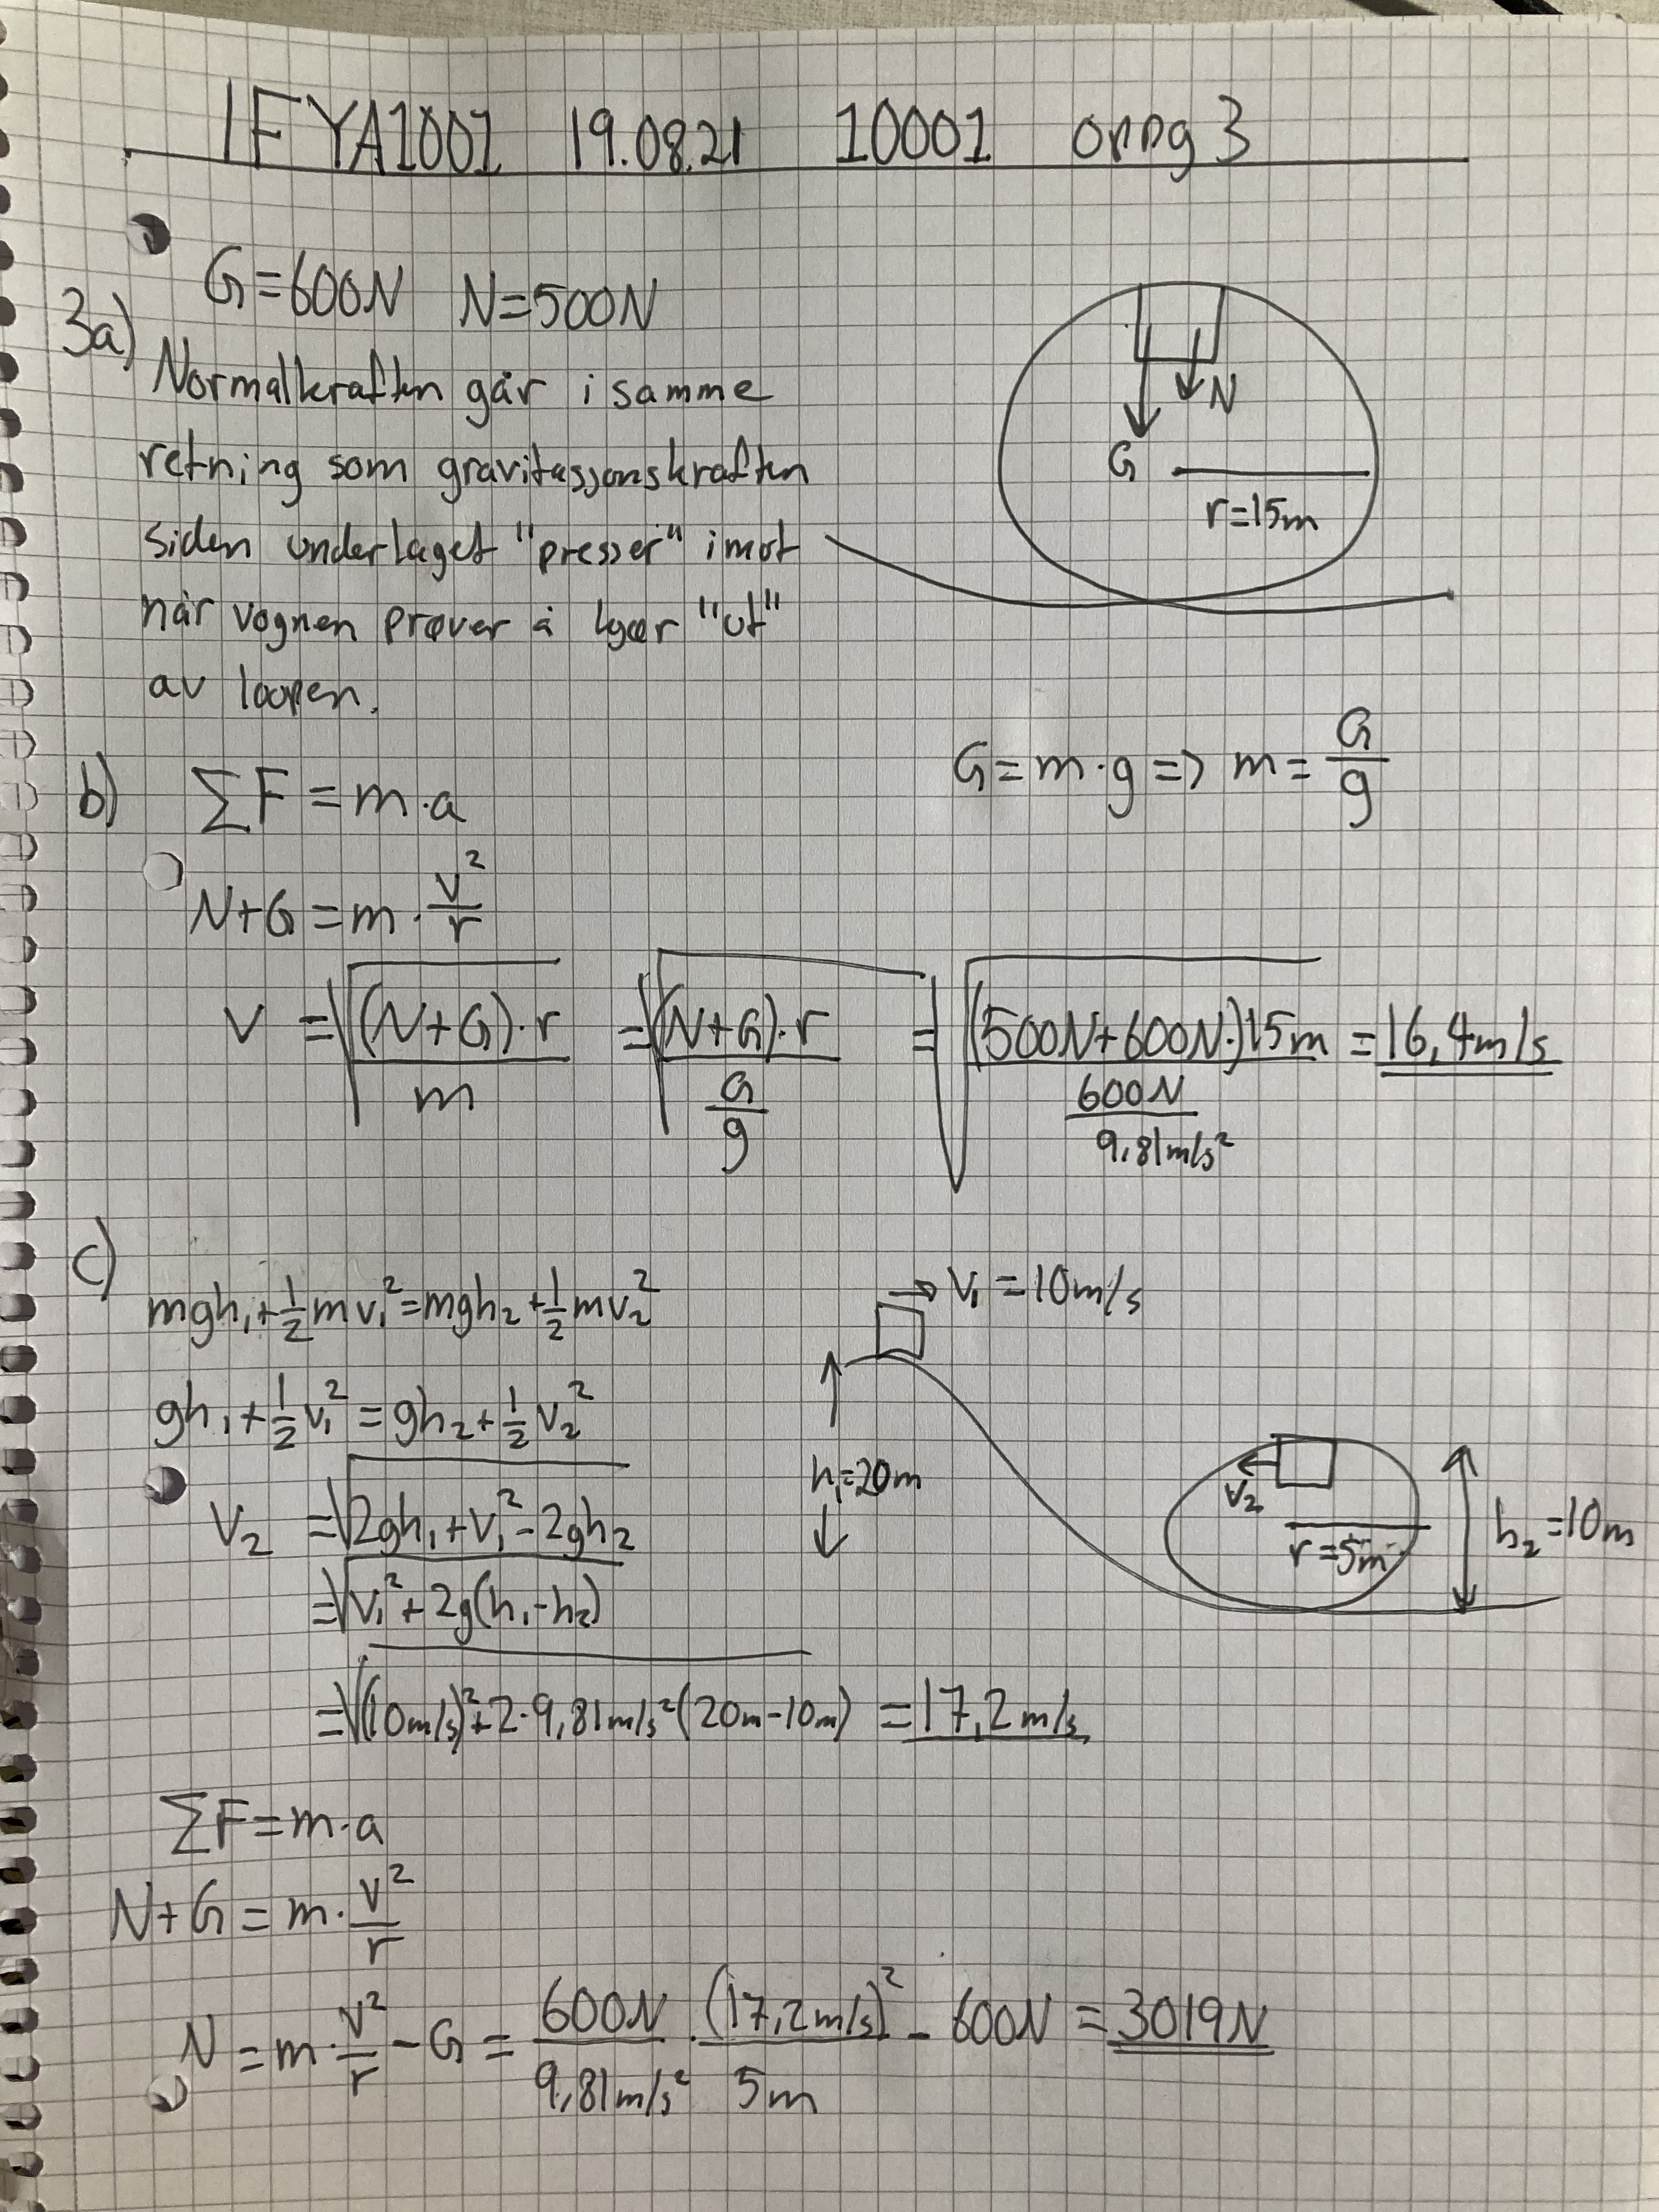 IFYA1001 19.08.21 10001 oppg 3
G=600N N=500N
3a) Normalkraften går i samme
retning som gravitassjonskraften
siden underlaget "presser" imot
når vognen prøver å kjør "ut"
av loopen.
N
G
r=15m
b) ∑F = m·a
G = m·g => m = G/g
N+G = m·v²/r
v = √((N+G)·r/m) = √((N+G)·r/(G/g)) = √((500N+600N·)15m/(600N/9,81m/s²)) = 16,4m/s
c)
mgh₁+½mv₁²=mgh₂+½mv₂²
gh₁+½v₁²=gh₂+½v₂²
v₂ =√(2gh₁+v₁²-2gh₂)
=√(v₁²+2g(h₁-h₂))
=√((10m/s)²+2·9,81m/s²(20m-10m)) = 17,2m/s
→ v₁ = 10m/s
h₁=20m
v₂
r=5m
h₂=10m
∑F=m·a
N+G = m·v²/r
N = m·v²/r - G = 600N/9,81m/s² · (17,2m/s)²/5m - 600N = 3019N